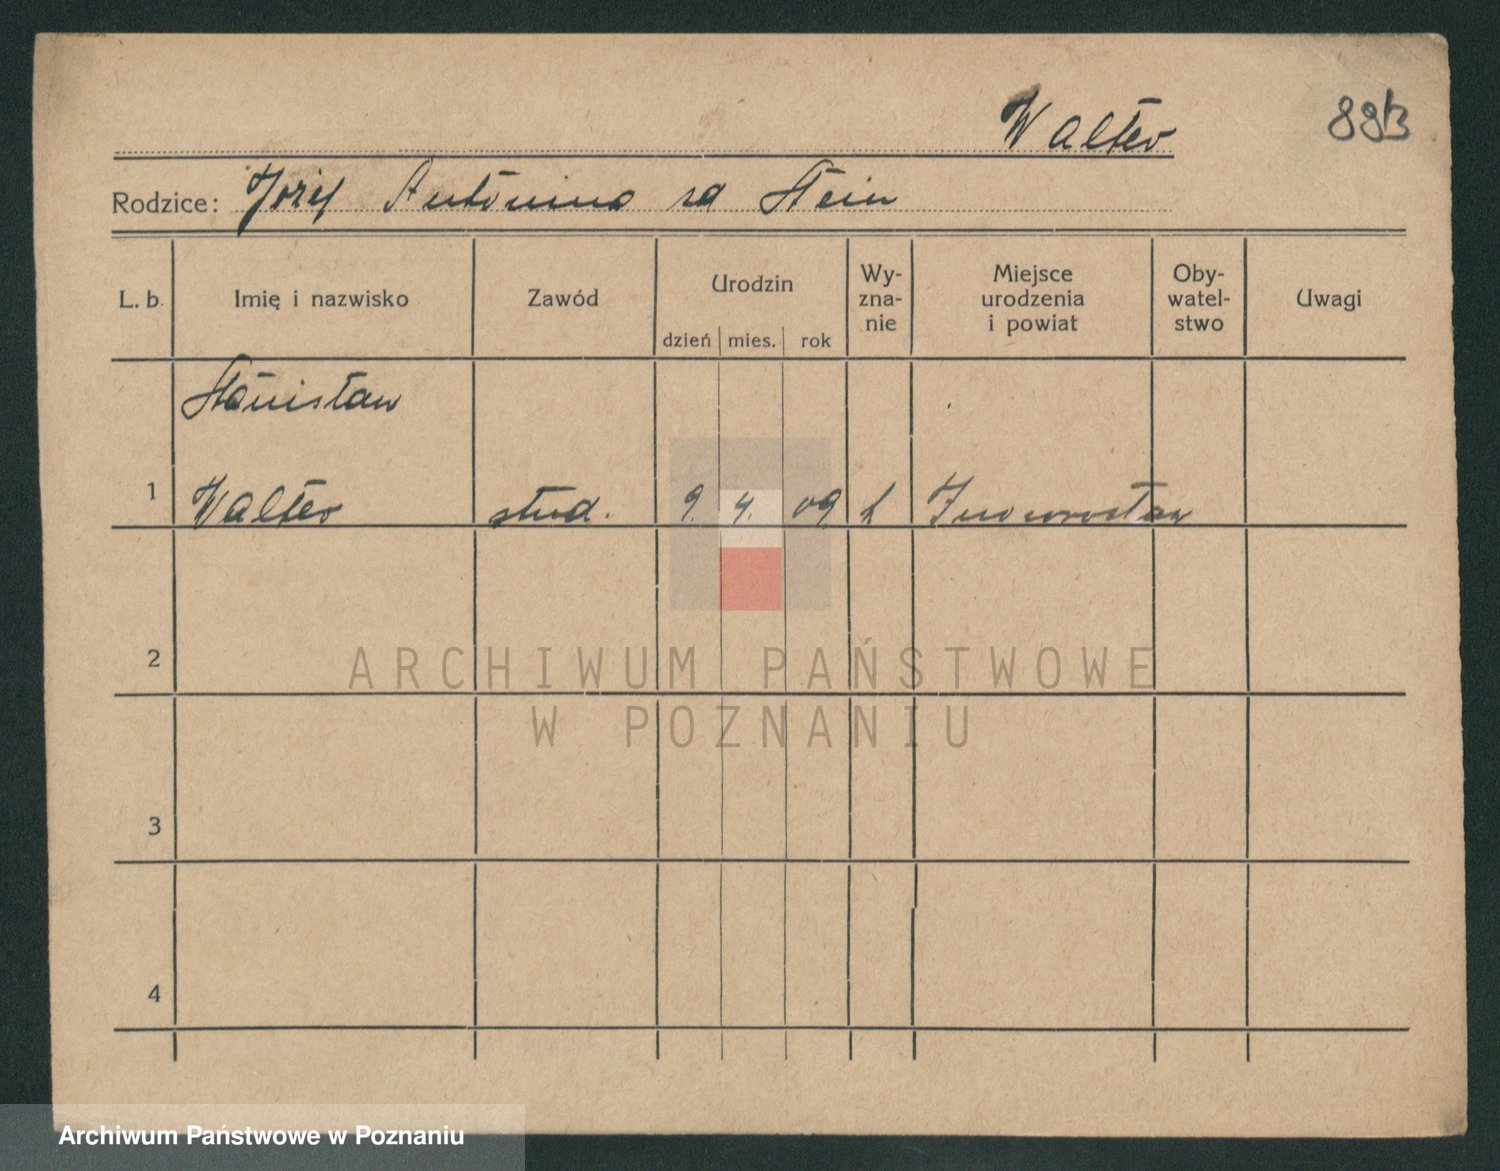 Walter
Rodzice: Józef Antonina zd Stein
L. b. Imię i nazwisko Zawód Urodzin dzień mies. rok Wy-zna-nie Miejsce urodzenia i powiat Oby-watel-stwo Uwagi
Stanisław
1 Walter stud. 9. 4. 09 Inowrocław
2
ARCHIWUM PAŃSTWOWE
W POZNANIU
3
4
Archiwum Państwowe w Poznaniu